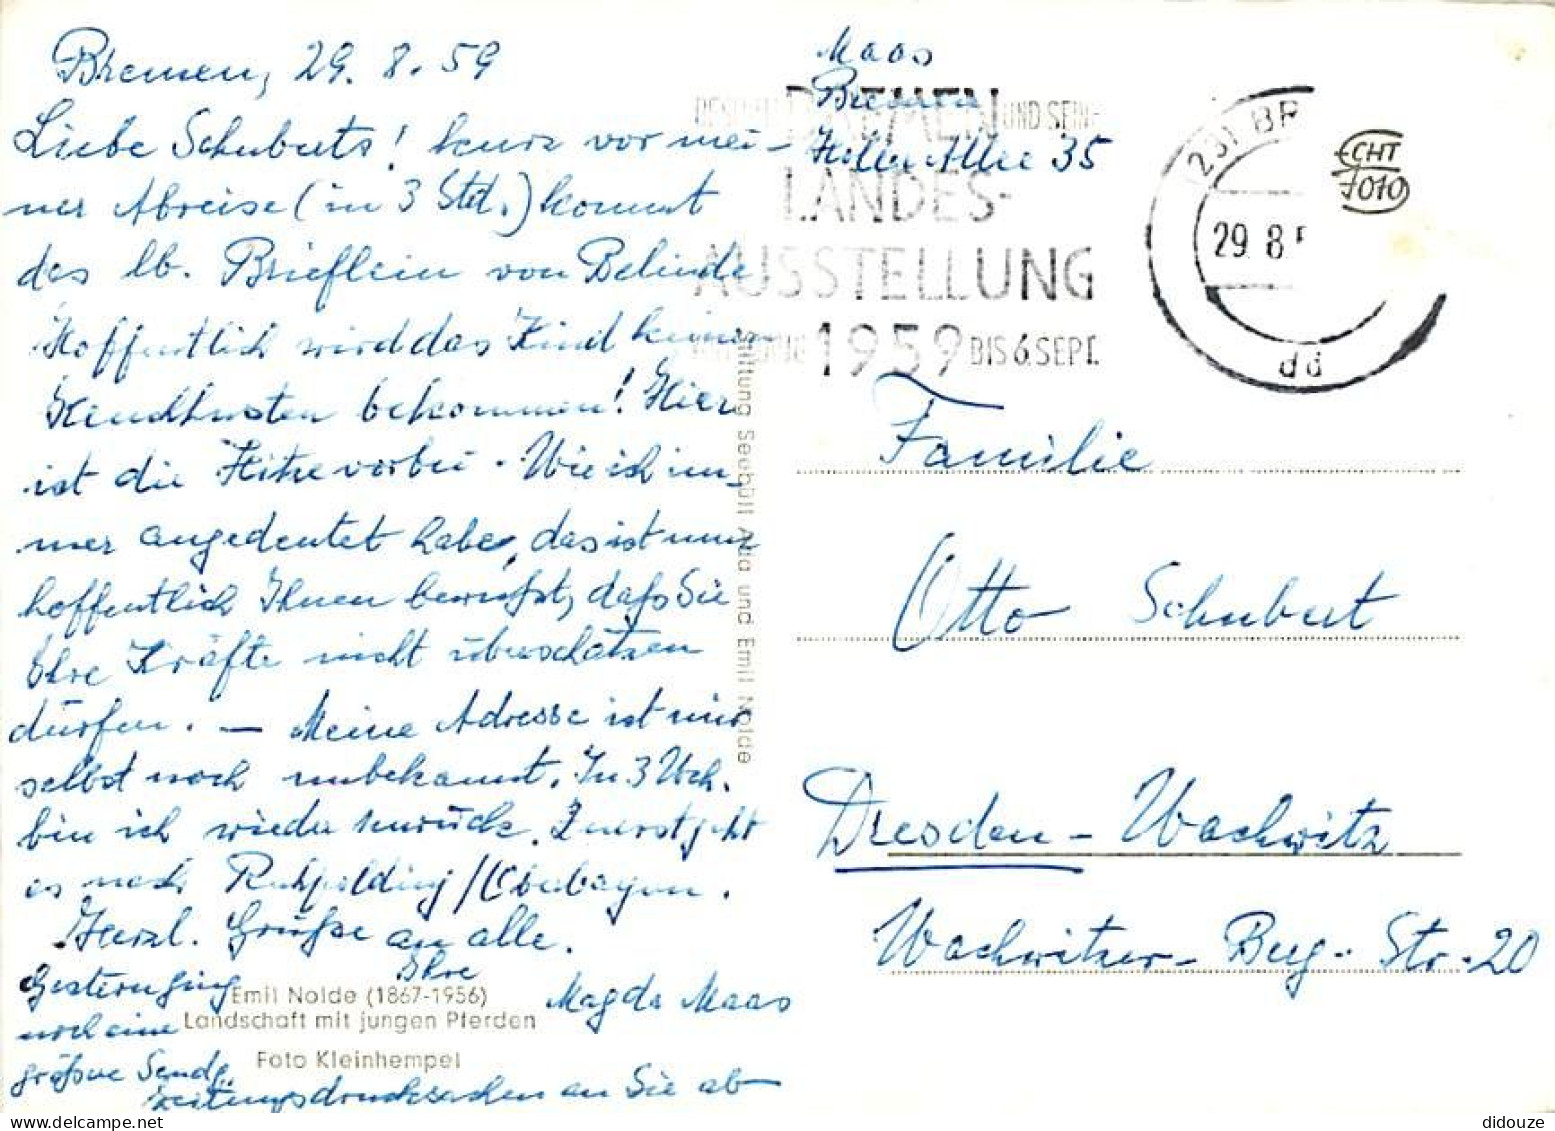 Bremen, 29. 8. 59
Liebe Schuberts! kurz vor mei-
ner Abreise (in 3 Std.) kommt
das lb. Brieflein von Belinde
Hoffentlich wird das Kind keinen
Keuchhusten bekommen! Hier
ist die Hitze vorbei. Wie ich im-
mer angedeutet habe, das ist nun
hoffentlich Ihnen bewußt, daß Sie
Ihre Kräfte nicht überschätzen
dürfen. — Meine Adresse ist mir
selbst noch unbekannt. In 3 Wch.
bin ich wieder zurück. Zuerst geht
es nach Ruhpolding/Oberbayern.
Herzl. Grüße an alle.
Ihre
Magda Maas
Gestern ging
noch eine
größere Sendg.
Zeitungsdrucksachen an Sie ab
Emil Nolde (1867-1956)
Landschaft mit jungen Pferden
Foto Kleinhempel
Stiftung Seebüll Ada und Emil Nolde
Maas
Bremen
Holler Allee 35
BREMEN UND SEINE
LANDES-
AUSSTELLUNG
1959 BIS 6. SEPT.
(23) BR
29. 8. 5
dd
ECHT
FOTO
Familie
Otto Schubert
Dresden-Wachwitz
Wachwitzer-Berg-Str. 20
didouze